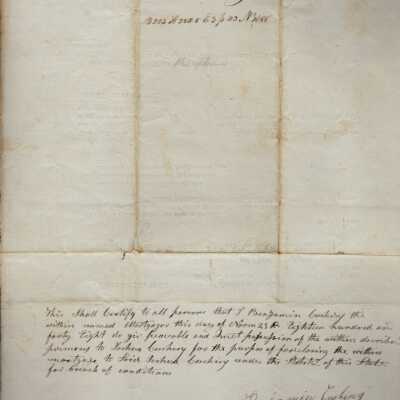 This Shall Certify to all persons that I Benjamin Cushing the
within named Mortgagor this day of Novm 23 A Eighteen hundred an
forty Eight do give peaceable and quiet possession of the within describe
premises to Joshua Cushing for the purpos of foreclosing the within
mortgage to Said Joshua Cushing under the Statute of this State
for breach of conditions
Benjamin Cushing